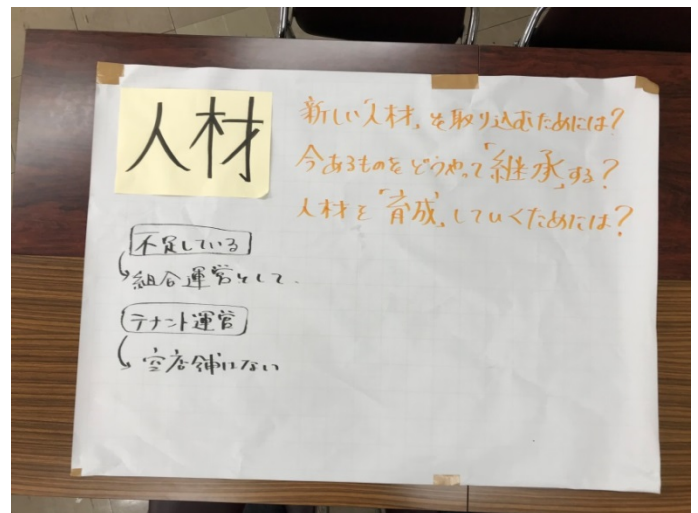 人材
新しい「人材」を取り込むためには?
今あるものをどうやって「継承」する?
人材を「育成」していくためには?
不足している
組合運営として.
テナント運営
空店舗はない